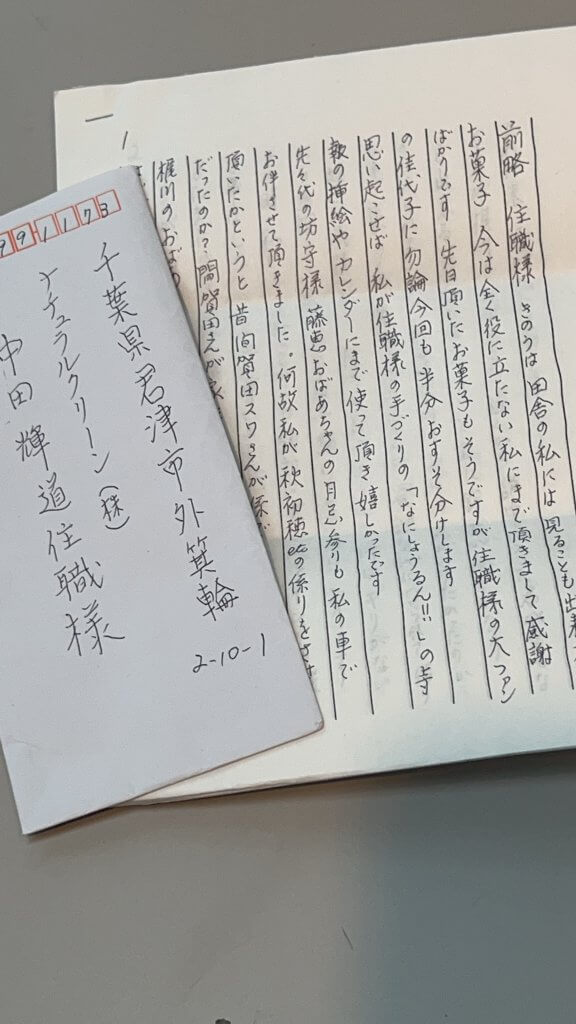 前略 住職様 きのうは 田舎の私には 見ることも出来
お菓子 今は全く役に立たない私にまで頂きまして感謝
ばかりです 先日頂いたお菓子もそうですが住職様の大ファン
の佳代子に勿論今回も半分おすそ分けします
思い起こせば 私が住職様の手づくりの「なにしょうるん!!」の寺
報の挿絵やカレンダーにまで使って頂き嬉しかったです
先々代の坊守様 藤恵おばあちゃんの月忌参りも私の車で
お伴させて頂きました。何故私が秋初穂etcの係りをさせ
頂いたかというと 昔間賀田スワさんが
だったのか?間賀田さんが
梶川のおばあ
1
991173
千葉県君津市外箕輪
2-10-1
ナチュラルクリーン(株)
中田輝道住職様